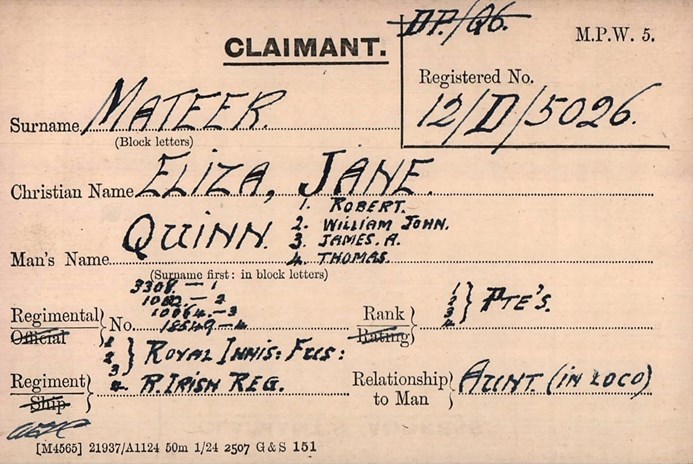 DP./Q6.
M.P.W. 5.
CLAIMANT.
Registered No.
12/D/5026.
Surname MATEER.
(Block letters)
Christian Name ELIZA, JANE.
Man's Name QUINN. 1. ROBERT.
2. WILLIAM JOHN.
3. JAMES. A.
4. THOMAS.
(Surname first: in block letters)
Regimental
Official
No. 3308. — 1
— 2
10064. — 3
18549 — 4
Rank
Rating
1
2
3
4.
PTE'S.
Regiment
Ship
1
2
3
ROYAL INNIS: FUS:
4. R. IRISH REG.
Relationship
to Man
AUNT (IN LOCO)
[M4565] 21937/A1124 50m 1/24 2507 G & S 151